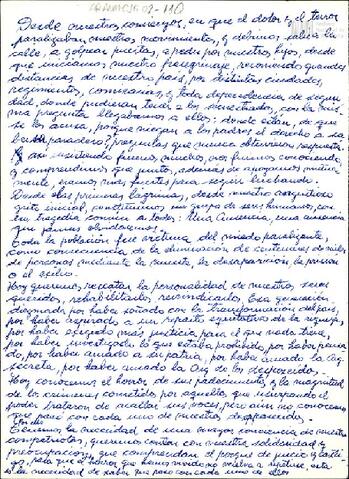 Desde nuestros comienzos, en que el dolor y el terror
paralizaban nuestros movimientos, y debimos salir a la
calle, a golpear puertas, a pedir por nuestros hijos, desde
que iniciamos nuestro peregrinaje, recorriendo grandes
distancias de nuestro país, por distintas ciudades,
regimientos, comisarías, y toda dependencia de seguri
dad, donde pudieran tener a los secuestrados, con la misma
pregunta llegábamos a ellos: donde están, de que
se los acusa, porque niegan a los padres el derecho a sa
ber su paradero, preguntas que nunca obtuvieron respuesta.
Y así insistiendo fuimos muchos, nos fuimos conociendo,
y comprendimos que juntos, además de apoyarnos mutua
mente, éramos más fuertes para seguir luchando.
Desde las primeras lágrimas, desde nuestro
inicial, constituimos un grupo de seres humanos, con
una tragedia común a todos: Una Ausencia, una ausencia
que jamás abandonaremos.
Toda la población fue víctima del miedo paralizante,
como consecuencia de la eliminación de centenares de miles
de personas mediante la muerte, la desaparición, la prisión
o el exilio.
Hoy queremos rescatar la personalidad de nuestros seres
queridos, rehabilitarlos, reivindicarlos. Esa generación
diezmada por haber soñado con la transformación del país,
por haber aspirado a un reparto equitativo de la riqueza,
por haber exigido más justicia para el que nada tiene,
por haber investigado lo que estaba prohibido, por haber pensa
do, por haber amado a su patria, por haber amado la
secreta, por haber amado la de los desposeídos.
Hoy conocemos el horror de sus padecimientos y la magnitud
de los crímenes cometidos por aquellos que usurpando el
poder trataron de acallar sus voces, pero aún no conocemos
que pasó con cada uno de nuestros desaparecidos.
Tenemos la necesidad de una mayor conciencia de nuestros
compatriotas, queremos contar con vuestra solidaridad y
preocupación, que comprendan el porque de juicio y casti
go, para que el horror que hemos vivido no vuelva a repetirse, esta
es la necesidad de saber que pasó con cada uno de ellos